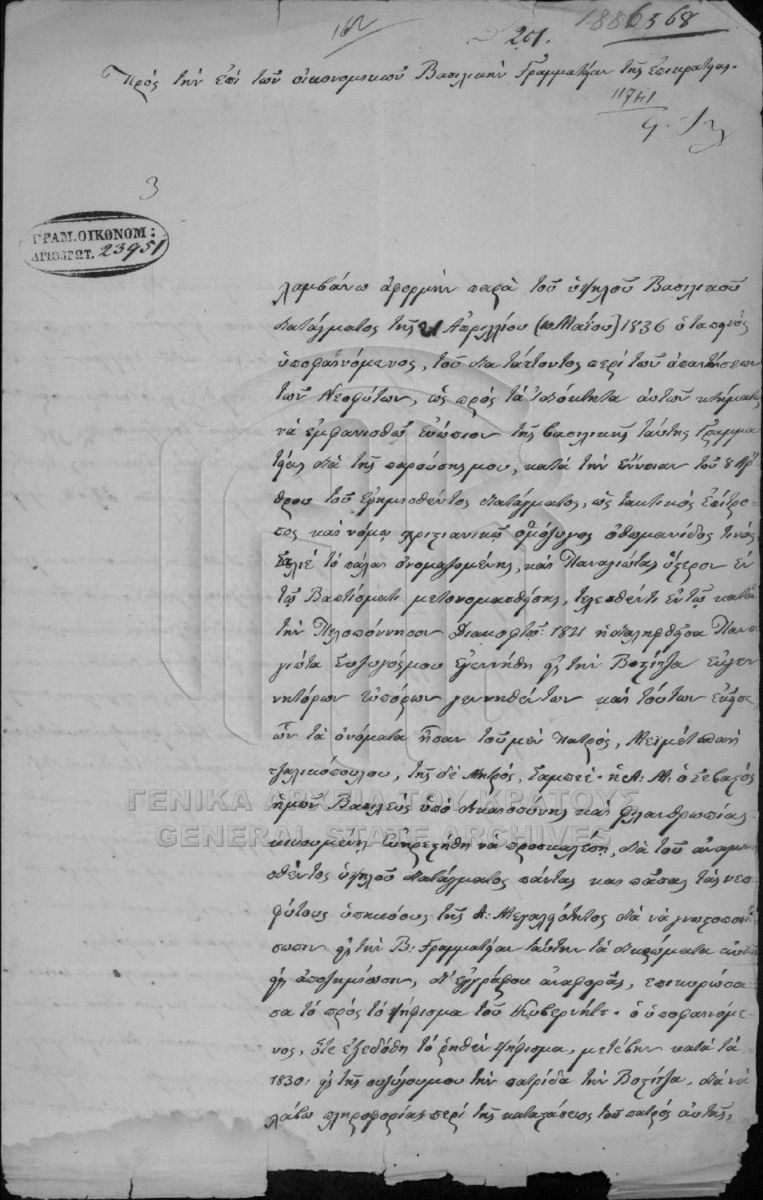 162
201.
1886368
Πρὸς τὴν ἐπὶ τῶν οἰκονομικῶν Βασιλικὴν Γραμματείαν τῆς Ἐπικρατείας.
11741
3
ΓΡΑΜ. ΟΙΚΟΝΟΜ:
ΑΡΙΘ.ΠΡΩΤ. 23951
Λαμβάνω ἀφορμὴν παρὰ τοῦ ὑψηλοῦ Βασιλικοῦ
διατάγματος τῆς 21 Ἀπριλλίου (10 Μαΐου) 1836 ὁ ταπεινὸς
ὑποφαινόμενος, τοῦ διατάττοντος περὶ τῶν ἀπαιτήσεων
τῶν Νεοφύτων, ὡς πρὸς τὰ ἰδιόκτητα αὐτῶν κτήματα,
νὰ ἐμφανισθῶ ἐνώπιον τῆς βασιλικῆς ταύτης Γραμμα
τείας διὰ τῆς παρούσης μου, κατὰ τὴν ἔννοιαν τοῦ 8 Ἄρ
θρου τοῦ εὐφημισθέντος διατάγματος, ὡς τακτικὸς ἐπίτρο-
πος καὶ νόμῳ χριστιανικῷ ὁμόζυγος ὀθωμανίδος τινὸς
τὸ πάλαι ὀνομαζομένης, καὶ Παναγιώτας ὕστερον ἐν
τῷ Βαπτίσματι μετονομασθείσης, τελεσθέντι ἐν τῷ κατὰ
τὴν Πελοπόννησον Διακοφτῷ: 1821 ἡ διαληφθεῖσα Πανα
γιώτα σύζυγός μου ἐγεννήθη εἰς τὴν Βοστίτζα εὐγεν
νητόρων εὐπόρων γεννηθέντων καὶ τούτων
ὧν τὰ ὀνόματα ἦσαν τοῦ μὲν Πατρός, Μεϊμὲτ
τζαλικόπουλου, τῆς δὲ Μητρός, Σαμπεέ· ἡ Α: Μ: ὁ Σεβαστὸς
ἡμῶν Βασιλεὺς ὑπὸ δικαιοσύνης καὶ φιλανθρωπίας
κινουμένη εὐηρεστήθη νὰ προσκαλέσῃ, διὰ τοῦ ἀναφερ
θέντος ὑψηλοῦ διατάγματος πάντας καὶ πάσας τὰς νεο
φύτους ὑπηκόους τῆς Α: Μεγαλειότητος διὰ νὰ γνωστοποιή
σωσιν εἰς τὴν Β: Γραμματείαν ταύτην τὰ δικαιώματα αὐτῶν
εἰς ἀποζημίωσιν, δι' ἐγγράφου ἀναφορᾶς, ἐπικυρώσα
σα τὸ πρὸς τὸ ψήφισμα τοῦ Κυβερνήτ: ὁ ὑποφαινόμε-
νος, ὅτε ἐξεδόθη τὸ ῥηθὲν ψήφισμα, μετέβην κατὰ τὰ
1830: εἰς τῆς συζύγου μου τὴν πατρίδα τὴν Βοστίτζα, διὰ νὰ
λάβω πληροφορίας περὶ τῆς καταστάσεως τοῦ πατρὸς αὐτῆς,
ΓΕΝΙΚΑ ΑΡΧΕΙΑ ΤΟΥ ΚΡΑΤΟΥΣ
GENERAL STATE ARCHIVES